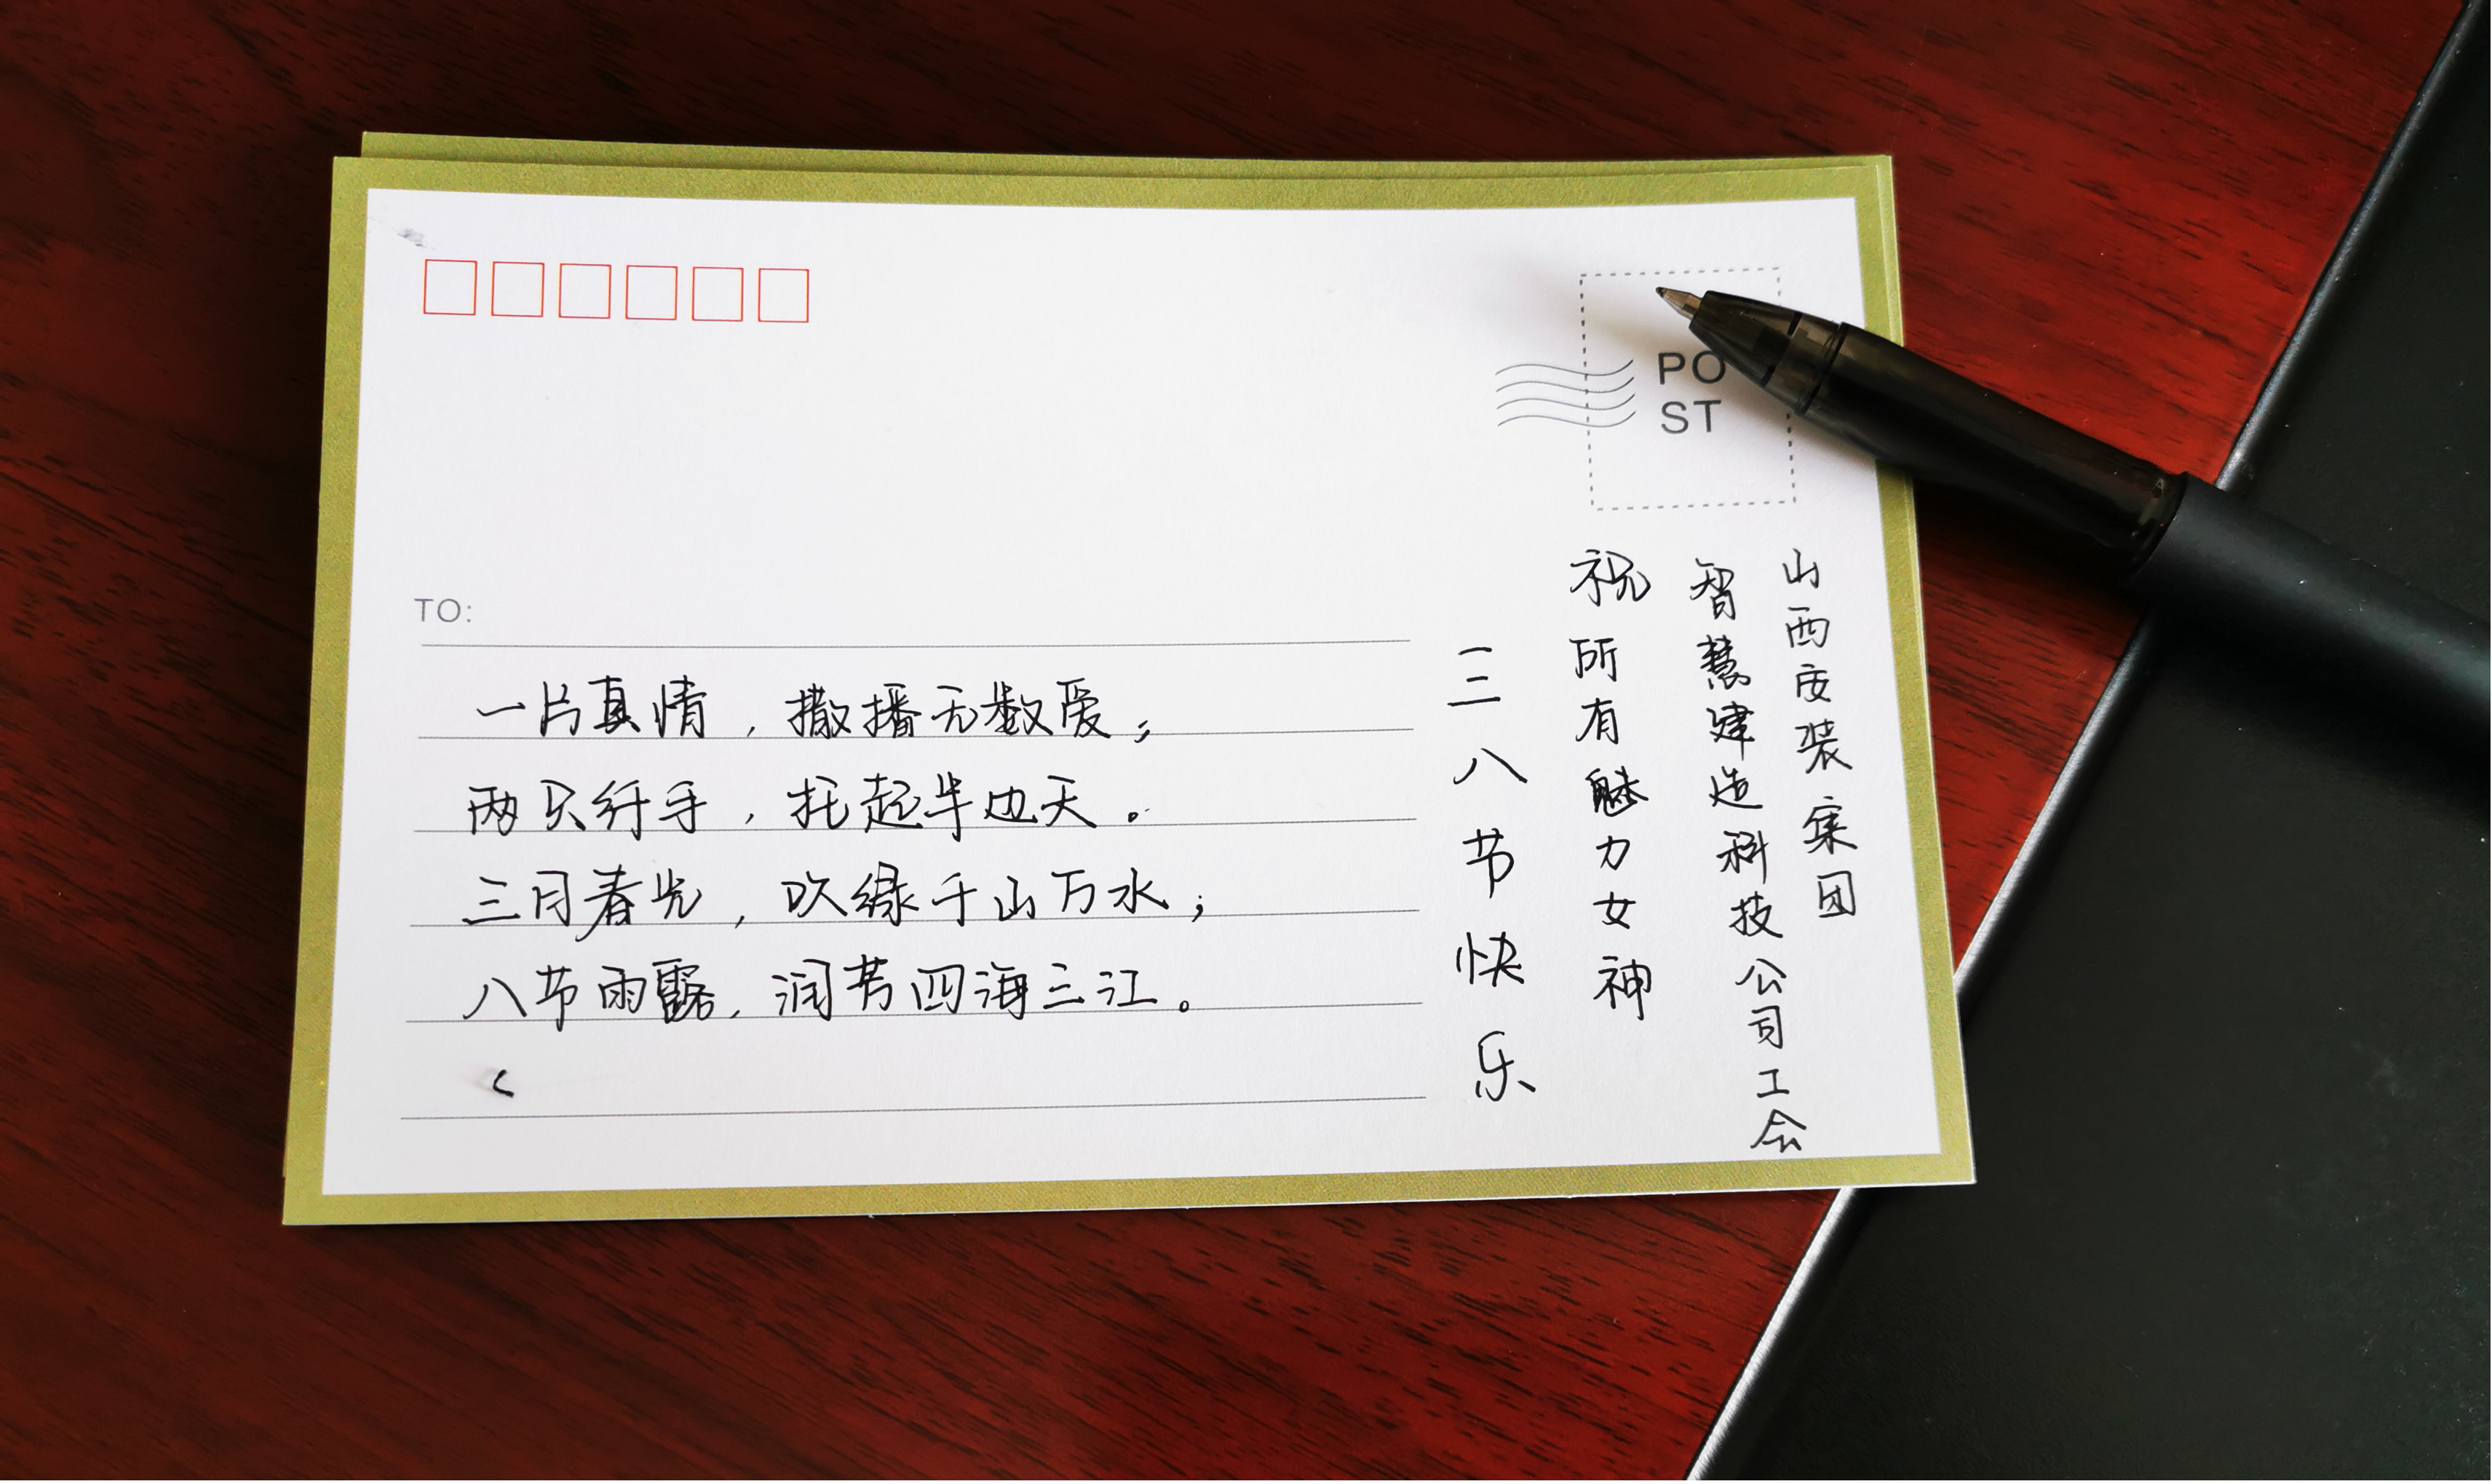 PO
ST
TO:
一片真情，撒播无数爱；
两只纤手，托起半边天。
三月春光，吹绿千山万水；
八节雨露，润芳四海三江。
山西安装集团
智慧建造科技公司工会
祝所有魅力女神
三八节快乐